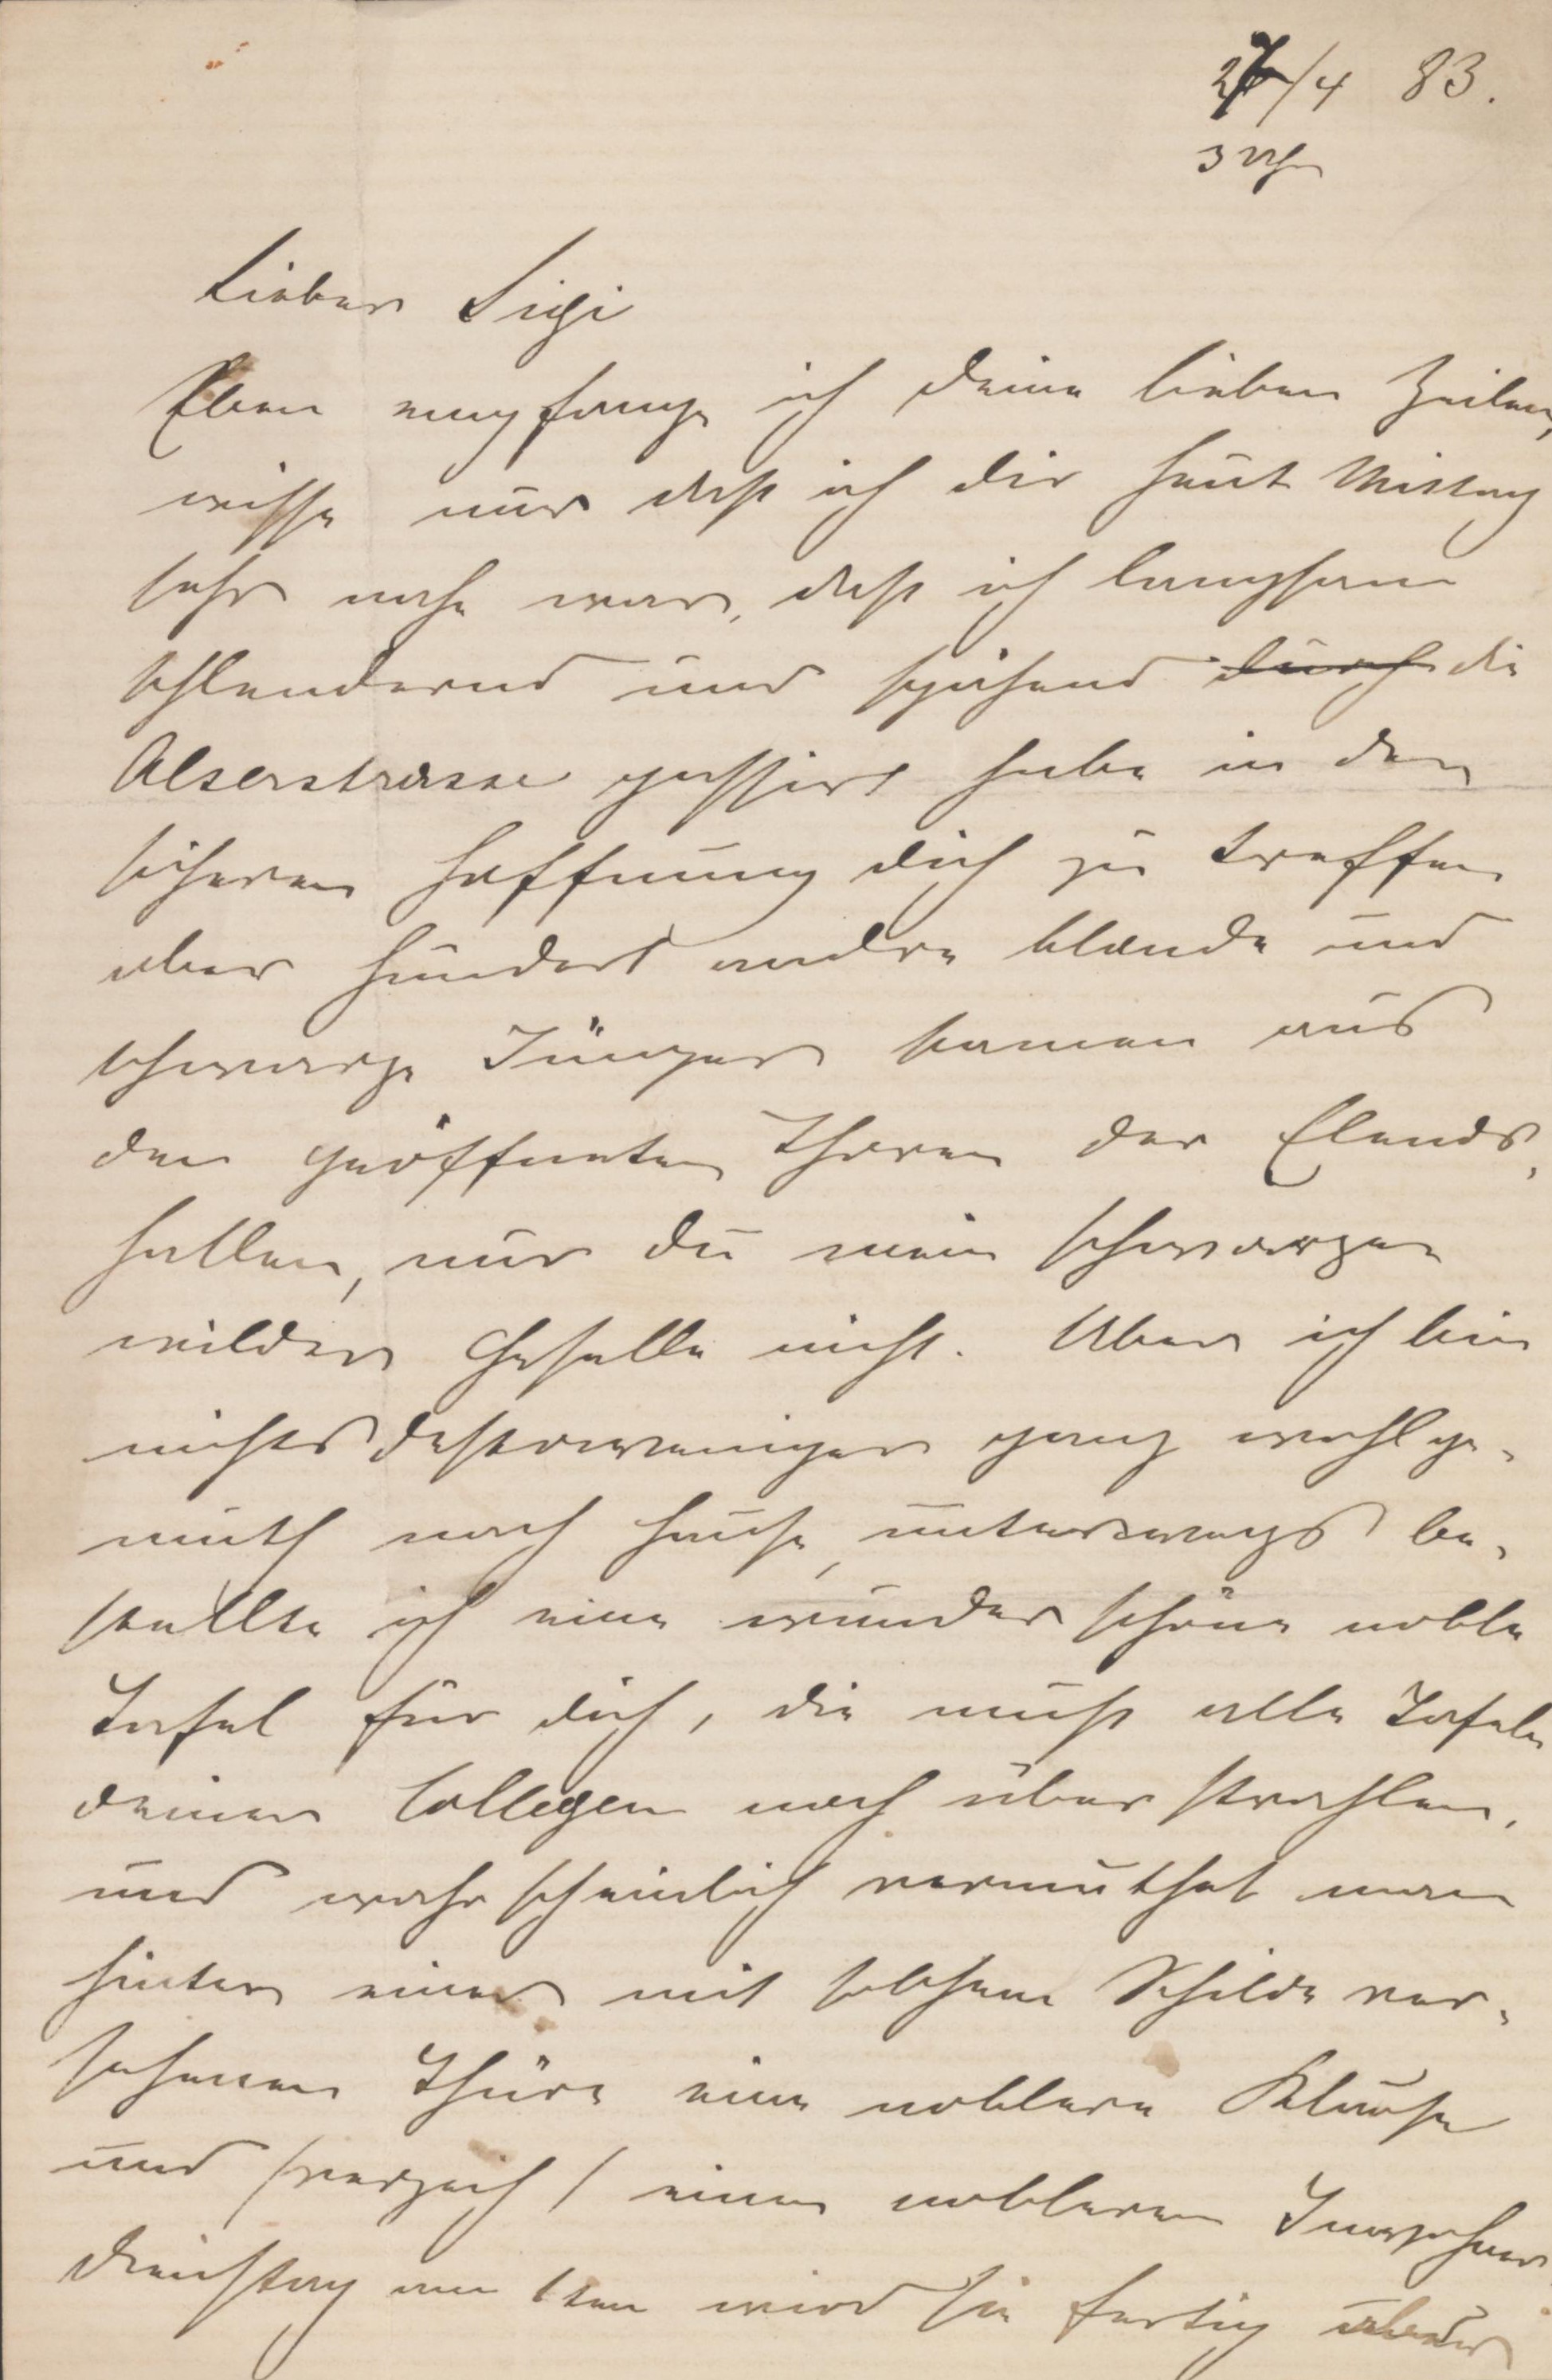 27/4 83.
3 Uhr
Lieber Sigi
Eben empfange ich deine lieben Zeilen,
wisse nur daß ich dir heut Mittag
sehr nahe war, daß ich langsam
schlendernd und spähend durch die
Alserstrasse passirt habe in der
sicheren Hoffnung dich zu treffen
aber hundert andre blonde und
schwarze Jünger kamen aus
den geöffneten Thoren der Elends,
hallen, nur du mein schwarzer
wilder Geselle nicht. Aber ich bin
nichtsdestoweniger ganz wohlge,
muth nach Hause, unterwegs be,
stellte ich eine wunderschöne noble
Tafel für dich, die muß alle Tafeln
deiner Collegen noch überstrahlen,
und wahrscheinlich vermuthet man
hinter einer mit solchem Schilde ver,
sehenen Thüre eine noblere Klause
und /verzeih/ einen nobleren Inwohner
Dienstag am 1ten wird sie fertig